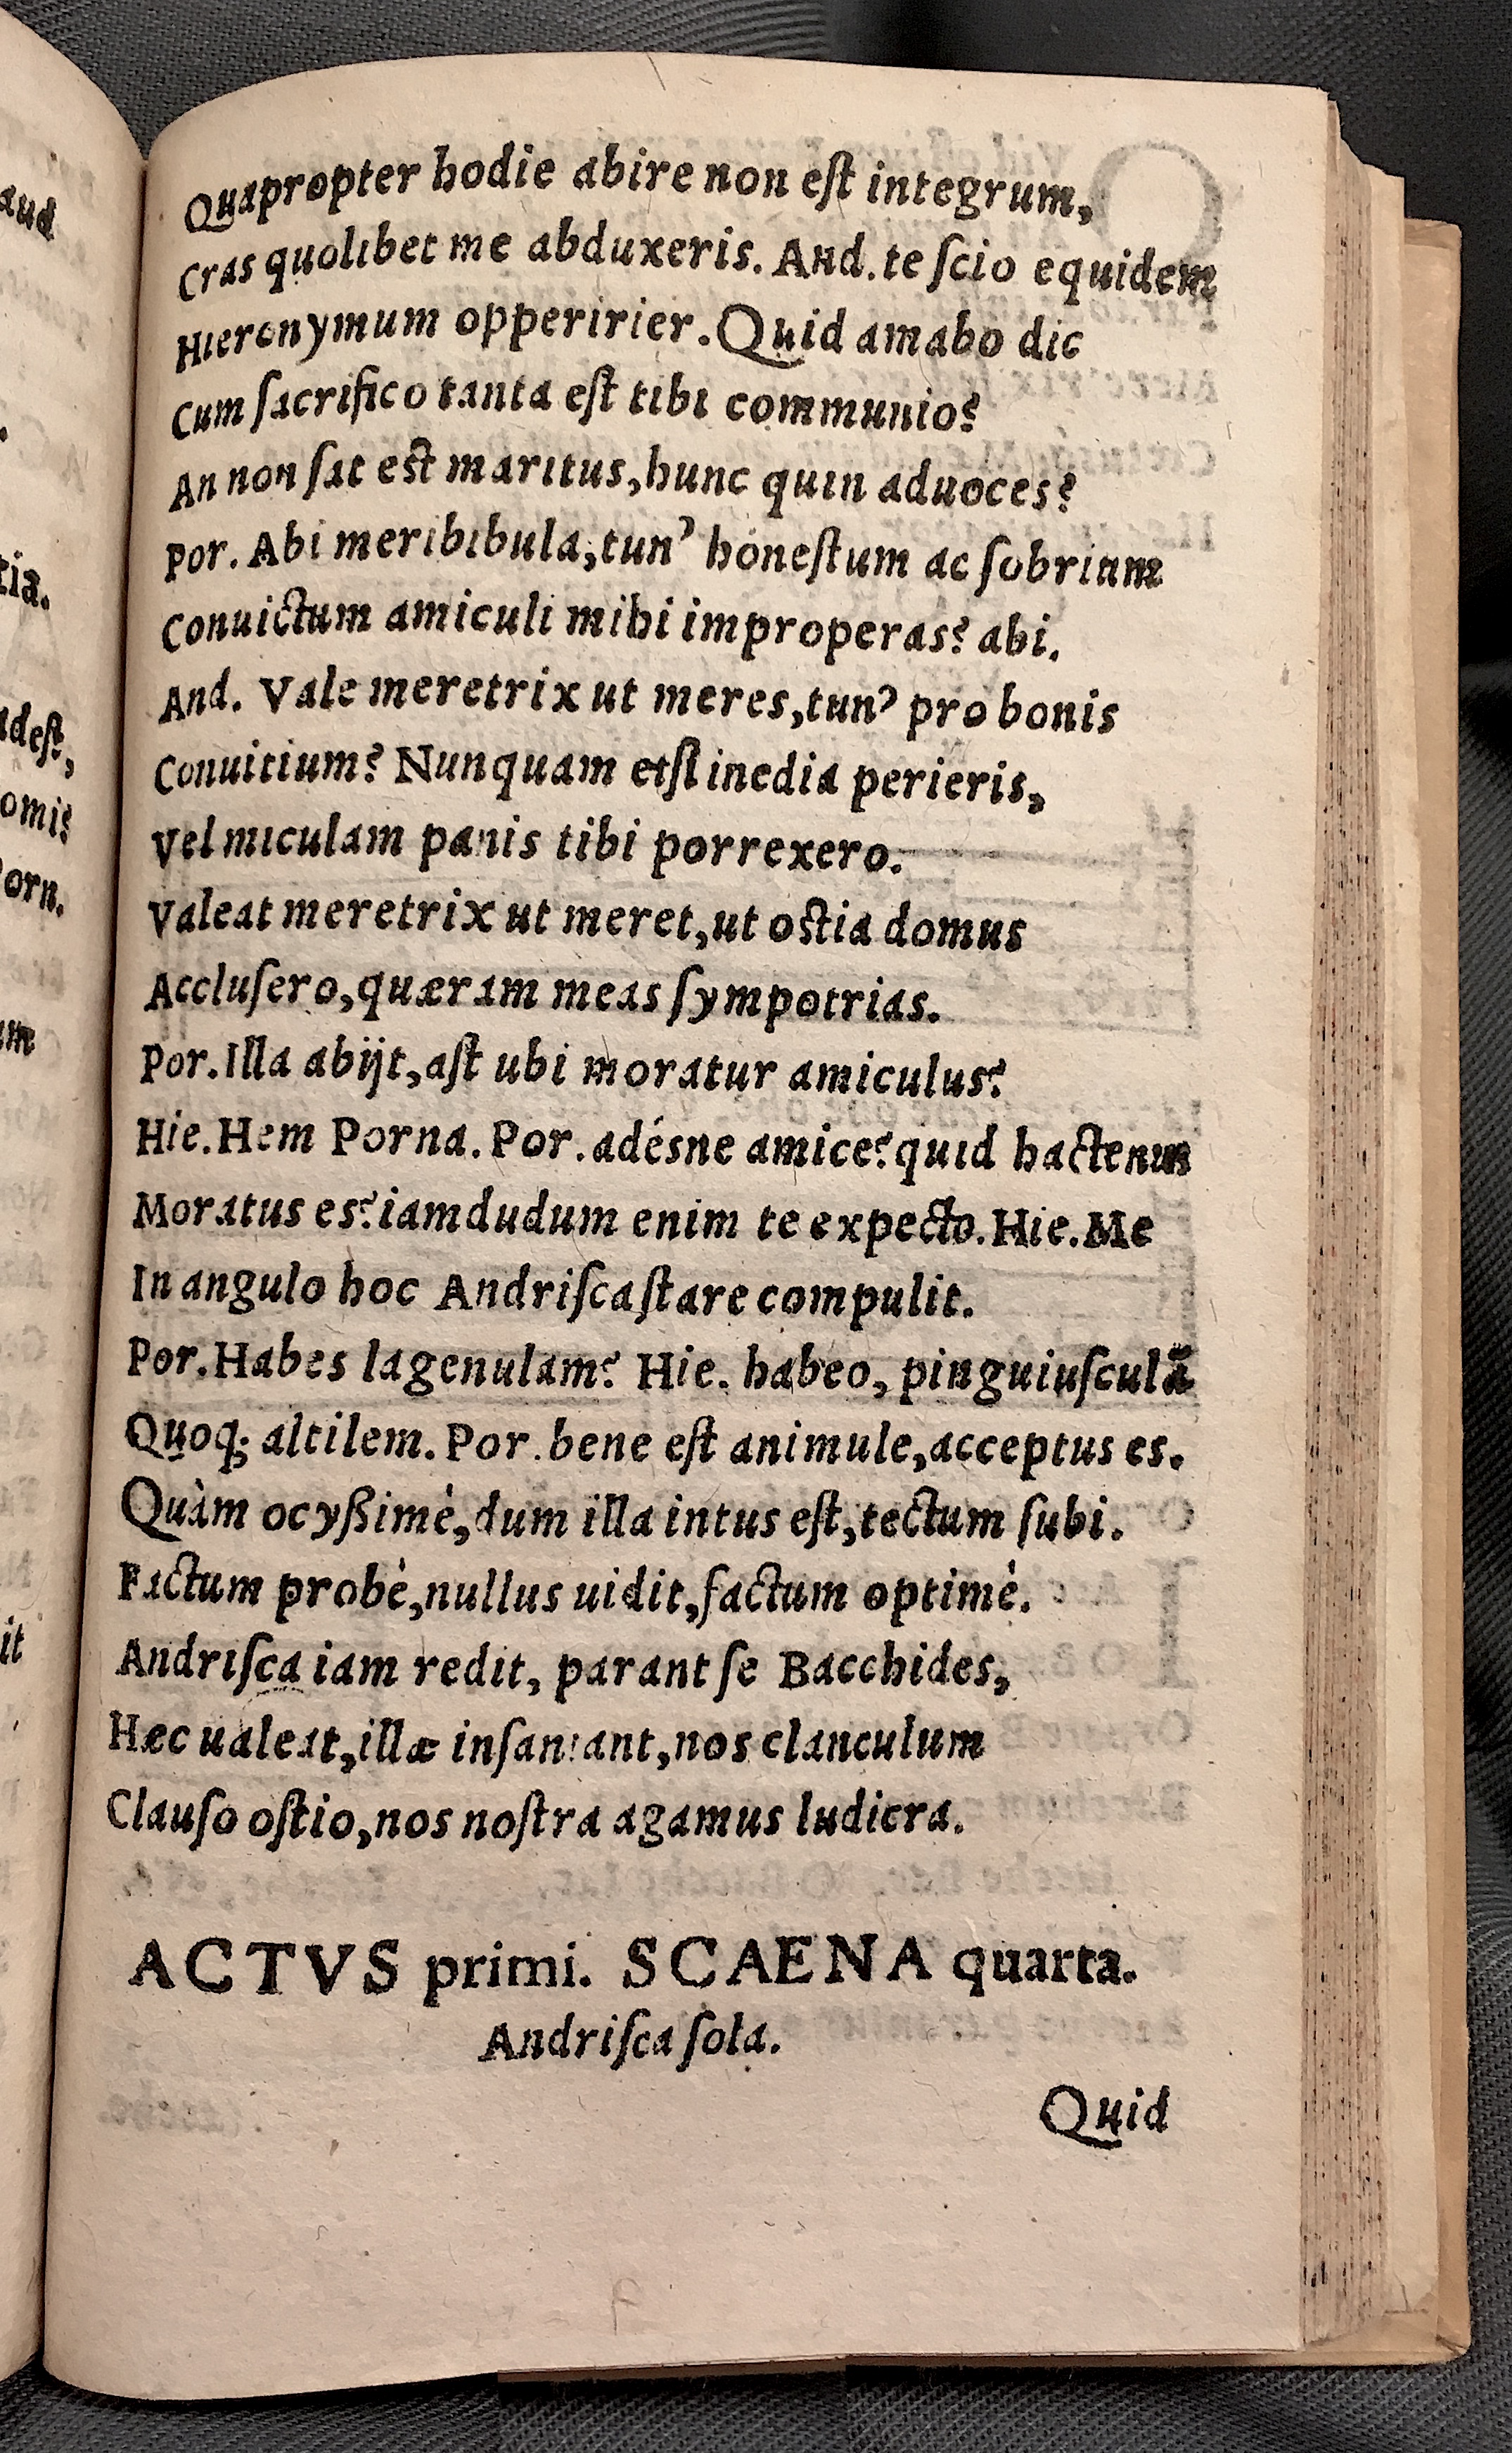 Quapropter hodie abire non eſt integrum,
Cras quolibet me abduxeris. And. te ſcio equidem
Hieronymum opperirier. Quid amabo dic
Cum ſacrifico tanta eſt tibi communio?
An non ſat eſt maritus, hunc quin aduoces?
Por. Abi meribibula, tun' honeſtum ac ſobrium
Conuictum amiculi mihi improperas? abi.
And. Vale meretrix ut meres, tun' pro bonis
Conuitium? Nunquam etſi inedia perieris,
Vel miculam panis tibi porrexero.
Valeat meretrix ut meret, ut oſtia domus
Accluſero, quæram meas ſympotrias.
Por. Illa abijt, aſt ubi moratur amiculus?
Hie. Hem Porna. Por. adésne amice? quid hactenus
Moratus es? iamdudum enim te expecto. Hie. Me
In angulo hoc Andriſca ſtare compulit.
Por. Habes lagenulam? Hie. habeo, pinguiuſculã
Quoq; altilem. Por. bene eſt animule, acceptus es.
Quàm ocyßimè, dum illa intus eſt, tectum ſubi.
Factum probè, nullus uidit, factum optimè.
Andriſca iam redit, parant ſe Bacchides,
Hæc ualeat, illæ inſaniant, nos clanculum
Clauſo oſtio, nos noſtra agamus ludicra.
ACTVS primi. SCAENA quarta.
Andriſca ſola.
Quid
aud
tia.
adeſt,
omi?
Porn.
um
it